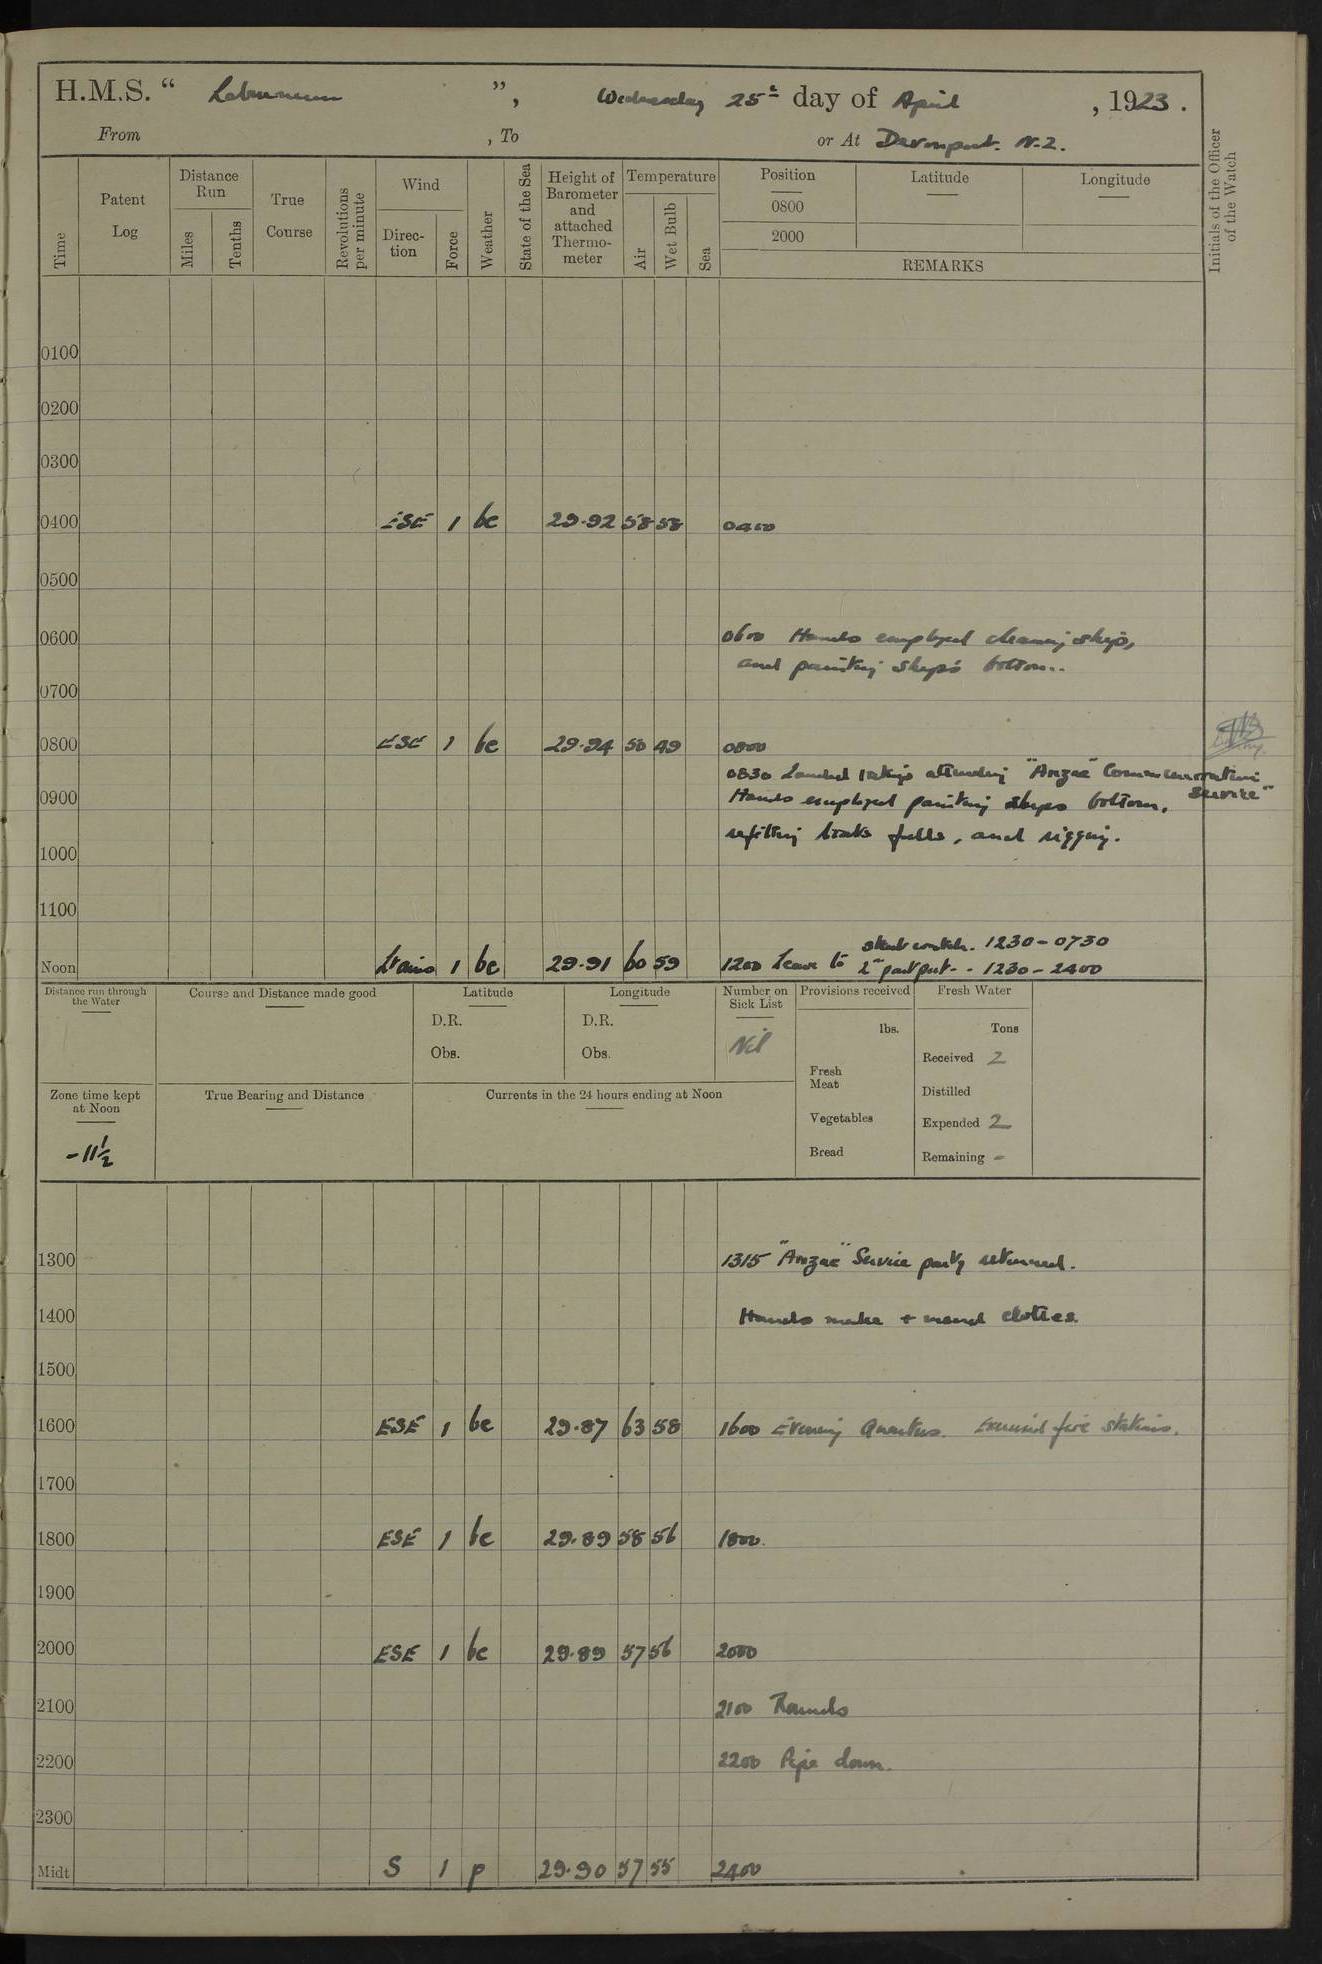 H.M.S. “ Laburnum ”, Wednesday 25th day of April , 1923.
From , To or At Devonport. N.Z.
Time
Patent Log
Distance Run
Miles
Tenths
True Course
Revolutions per minute
Wind
Direc-tion
Force
Weather
State of the Sea
Height of Barometer and attached Thermo-meter
Temperature
Air
Wet Bulb
Sea
Position
0800
2000
Latitude
Longitude
REMARKS
Initials of the Officer of the Watch
0100
0200
0300
0400 ESE 1 bc 29.92 58 58 0400
0500
0600 0600 Hands employed cleaning ship,
and painting ship's bottom.
0700
0800 ESE 1 bc 29.94 50 49 0800
0830 Landed ratings attending "Anzac" Commemoration Service"
0900 Hands employed painting ships bottom,
refitting boats falls, and rigging.
1000
1100
Noon 1 bc 29.91 60 59 1200 Leave to starb watch. 1230-0730
2nd part port - 1230-2400
Distance run through the Water
Course and Distance made good
Latitude
D.R.
Obs.
Longitude
D.R.
Obs.
Number on Sick List
Nil
Provisions received
lbs.
Fresh Meat
Vegetables
Bread
Fresh Water
Tons
Received 2
Distilled
Expended 2
Remaining -
Zone time kept at Noon
-11½
True Bearing and Distance
Currents in the 24 hours ending at Noon
1300 1315 "Anzac" Service party returned.
1400 Hands make + mend clothes.
1500
1600 ESE 1 bc 29.87 63 58 1600 Evening Quarters. Exercised fire stations.
1700
1800 ESE 1 bc 29.89 58 56 1800.
1900
2000 ESE 1 bc 29.89 57 56 2000
2100 2100 Rounds
2200 2200 Pipe down.
2300
Midt S 1 p 29.90 57 55 2400